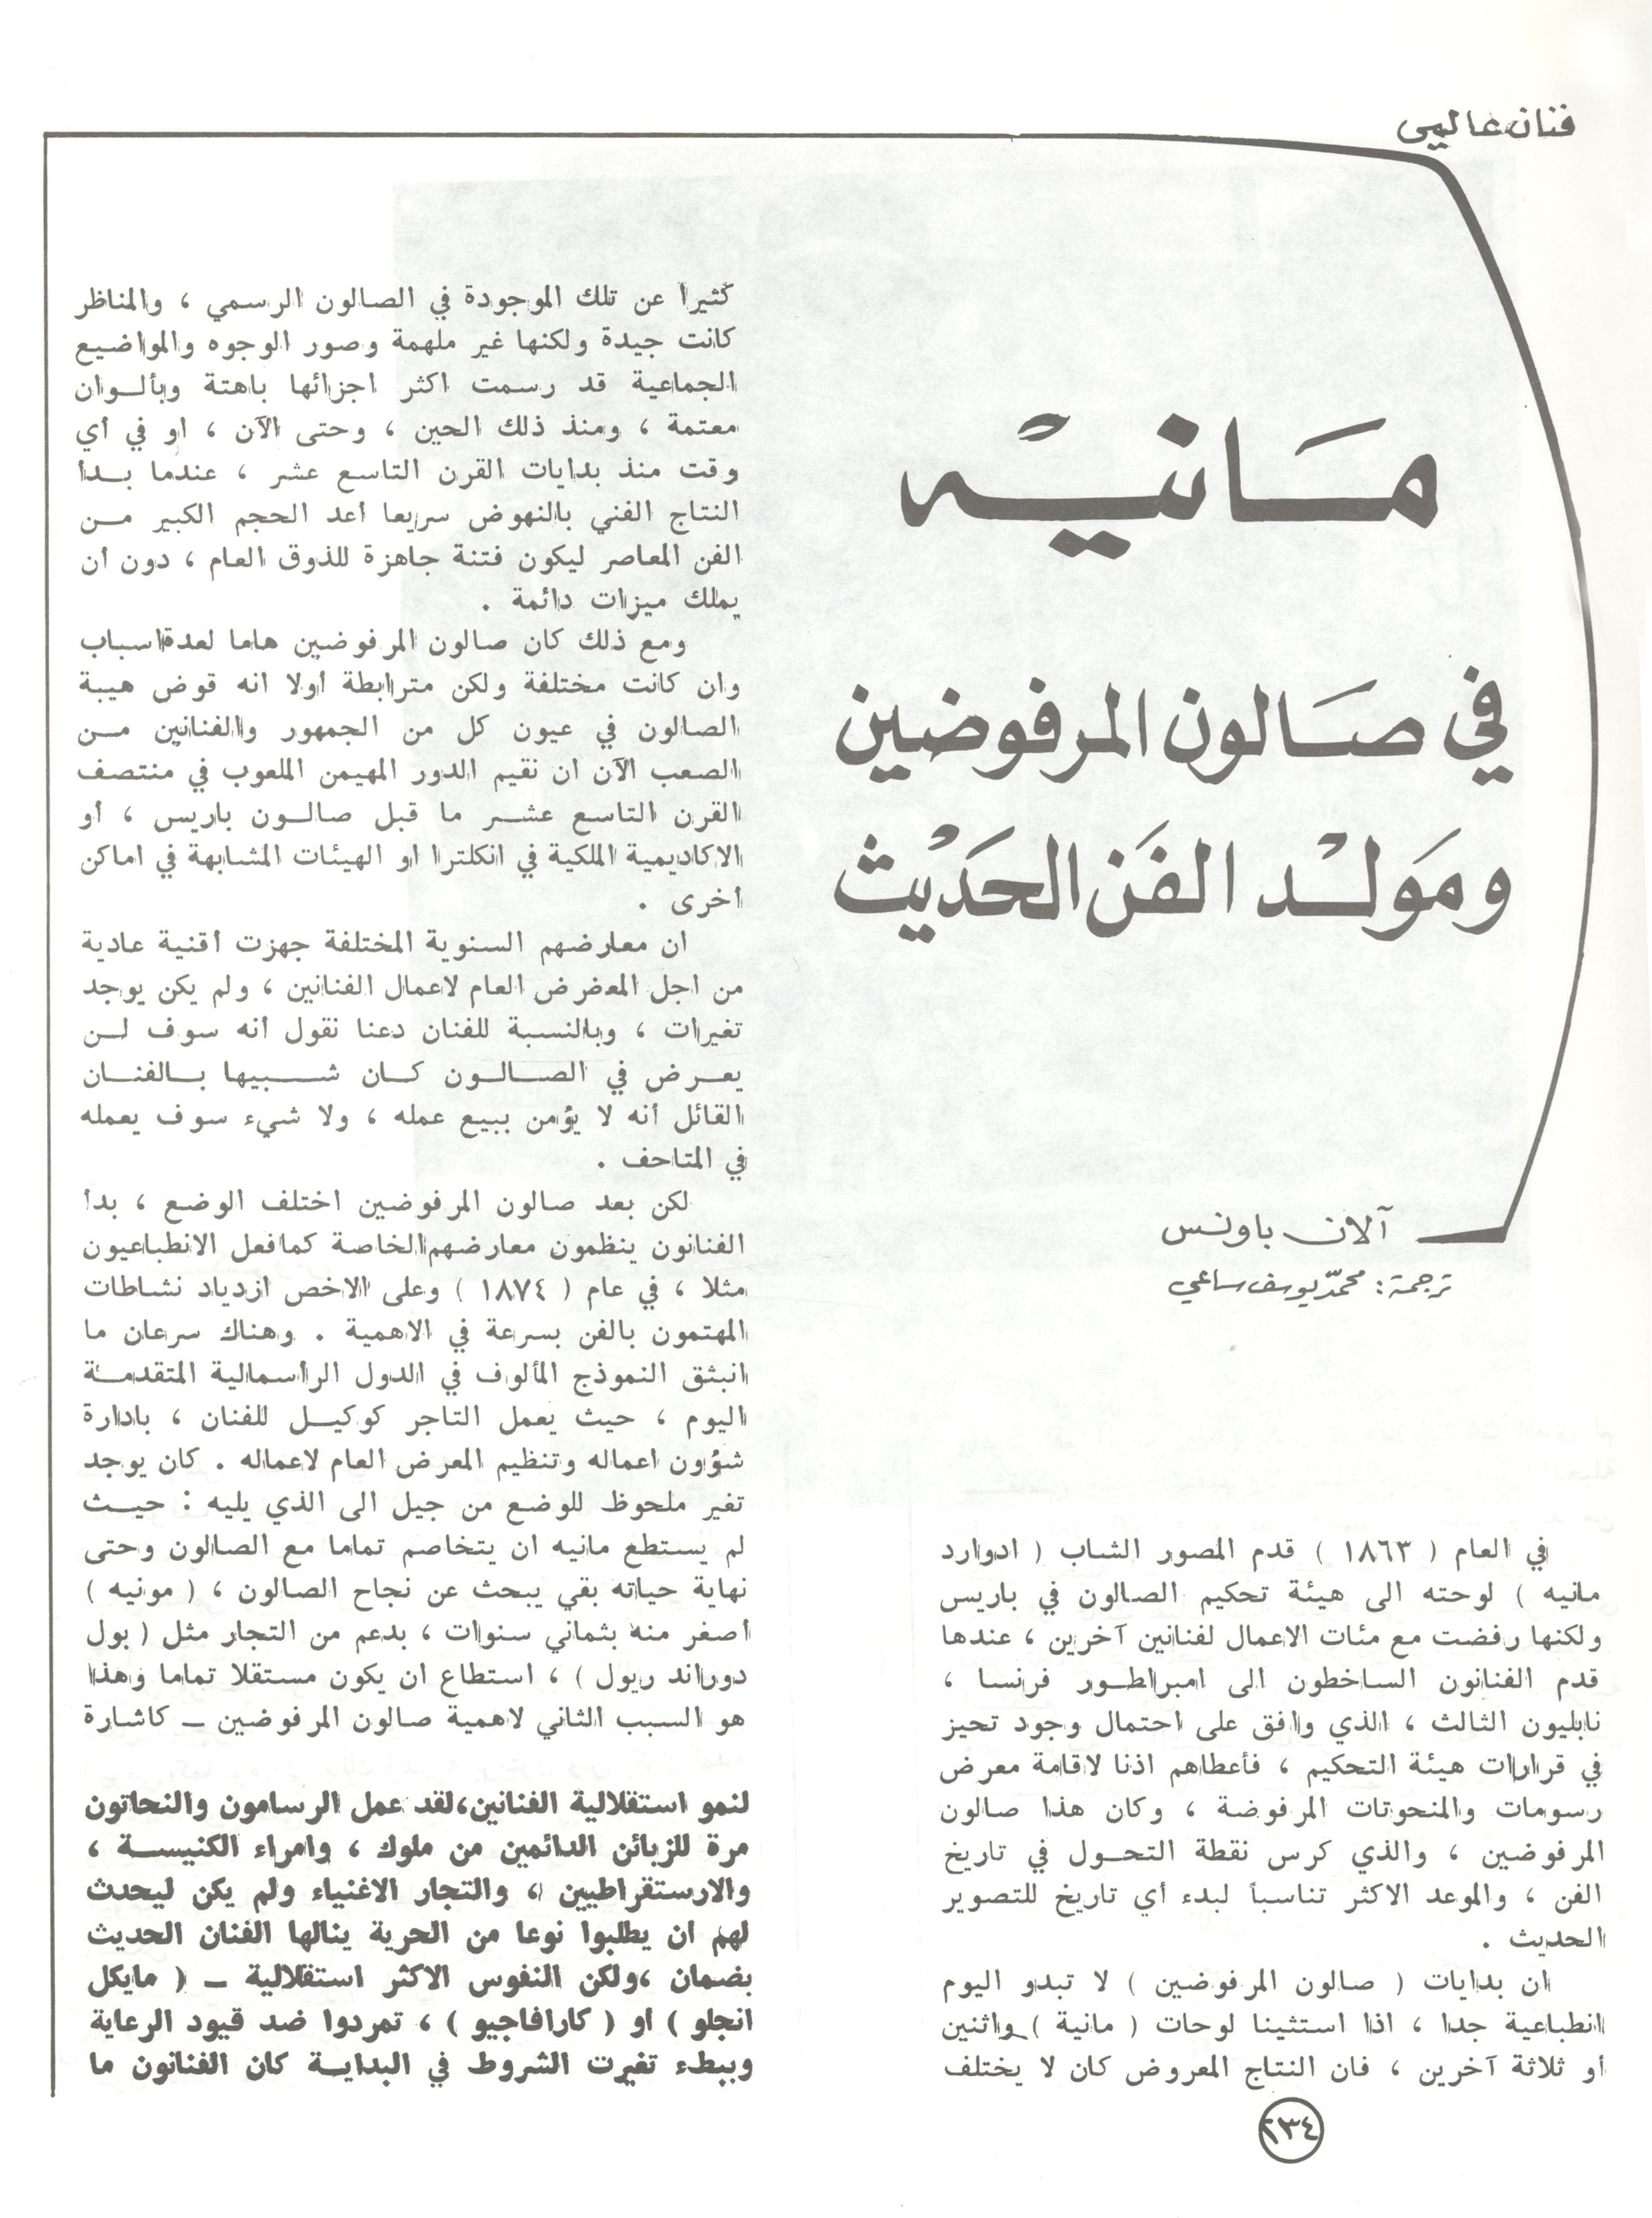 فنان عالمي
مانيه
في صالون المرفوضين
ومولد الفن الحديث
آلان باونس
ترجمة : محمد يوسف ساعي
في العام ( ١٨٦٣ ) قدم المصور الشاب ( ادوارد
مانيه ) لوحته الى هيئة تحكيم الصالون في باريس
ولكنها رفضت مع مئات الاعمال لفنانين آخرين ، عندها
قدم الفنانون الساخطون الى امبراطور فرنسا ،
نابليون الثالث ، الذي وافق على احتمال وجود تحيز
في قرارات هيئة التحكيم ، فأعطاهم اذنا لاقامة معرض
رسومات والمنحوتات المرفوضة ، وكان هذا صالون
المرفوضين ، والذي كرس نقطة التحول في تاريخ
الفن ، والموعد الاكثر تناسباً لبدء أي تاريخ للتصوير
الحديث .
ان بدايات ( صالون المرفوضين ) لا تبدو اليوم
انطباعية جدا ، اذا استثينا لوحات ( مانية ) واثنين
أو ثلاثة آخرين ، فان النتاج المعروض كان لا يختلف
كثيراً عن تلك الموجودة في الصالون الرسمي ، والمناظر
كانت جيدة ولكنها غير ملهمة وصور الوجوه والمواضيع
الجماعية قد رسمت اكثر اجزائها باهتة وبألوان
معتمة ، ومنذ ذلك الحين ، وحتى الآن ، او في أي
وقت منذ بدايات القرن التاسع عشر ، عندما بدأ
النتاج الفني بالنهوض سريعا أعد الحجم الكبير من
الفن المعاصر ليكون فتنة جاهزة للذوق العام ، دون أن
يملك ميزات دائمة .
ومع ذلك كان صالون المرفوضين هاما لعدة اسباب
وان كانت مختلفة ولكن مترابطة أولا انه قوض هيبة
الصالون في عيون كل من الجمهور والفنانين من
الصعب الآن ان نقيم الدور المهيمن الملعوب في منتصف
القرن التاسع عشر ما قبل صالون باريس ، أو
الاكاديمية الملكية في انكلترا او الهيئات المشابهة في اماكن
أخرى .
ان معارضهم السنوية المختلفة جهزت أقنية عادية
من اجل المعضرض العام لاعمال الفنانين ، ولم يكن يوجد
تغيرات ، وبالنسبة للفنان دعنا نقول أنه سوف لن
يعرض في الصالون كان شبيها بالفنان
القائل أنه لا يؤمن ببيع عمله ، ولا شيء سوف يعمله
في المتاحف .
لكن بعد صالون المرفوضين اختلف الوضع ، بدأ
الفنانون ينظمون معارضهم الخاصة كما فعل الانطباعيون
مثلا ، في عام ( ١٨٧٤ ) وعلى الاخص ازدياد نشاطات
المهتمون بالفن بسرعة في الاهمية . وهناك سرعان ما
انبثق النموذج المألوف في الدول الرأسمالية المتقدمة
اليوم ، حيث يعمل التاجر كوكيل للفنان ، بادارة
شؤون اعماله وتنظيم المعرض العام لاعماله . كان يوجد
تغير ملحوظ للوضع من جيل الى الذي يليه : حيث
لم يستطع مانيه ان يتخاصم تماما مع الصالون وحتى
نهاية حياته بقي يبحث عن نجاح الصالون ، ( مونيه )
أصغر منه بثماني سنوات ، بدعم من التجار مثل ( بول
دوراند ريول ) ، استطاع ان يكون مستقلا تماما وهذا
هو السبب الثاني لاهمية صالون المرفوضين ــ كاشارة
لنمو استقلالية الفنانين، لقد عمل الرسامون والنحاتون
مرة للزبائن الدائمين من ملوك ، وامراء الكنيسة ،
والارستقراطيين ، والتجار الاغنياء ولم يكن ليحدث
لهم ان يطلبوا نوعا من الحرية ينالها الفنان الحديث
بضمان ،ولكن النفوس الاكثر استقلالية ــ ( مايكل
انجلو ) او ( كارافاجيو ) ، تمردوا ضد قيود الرعاية
وببطء تغيرت الشروط في البداية كان الفنانون ما
٢٣٤